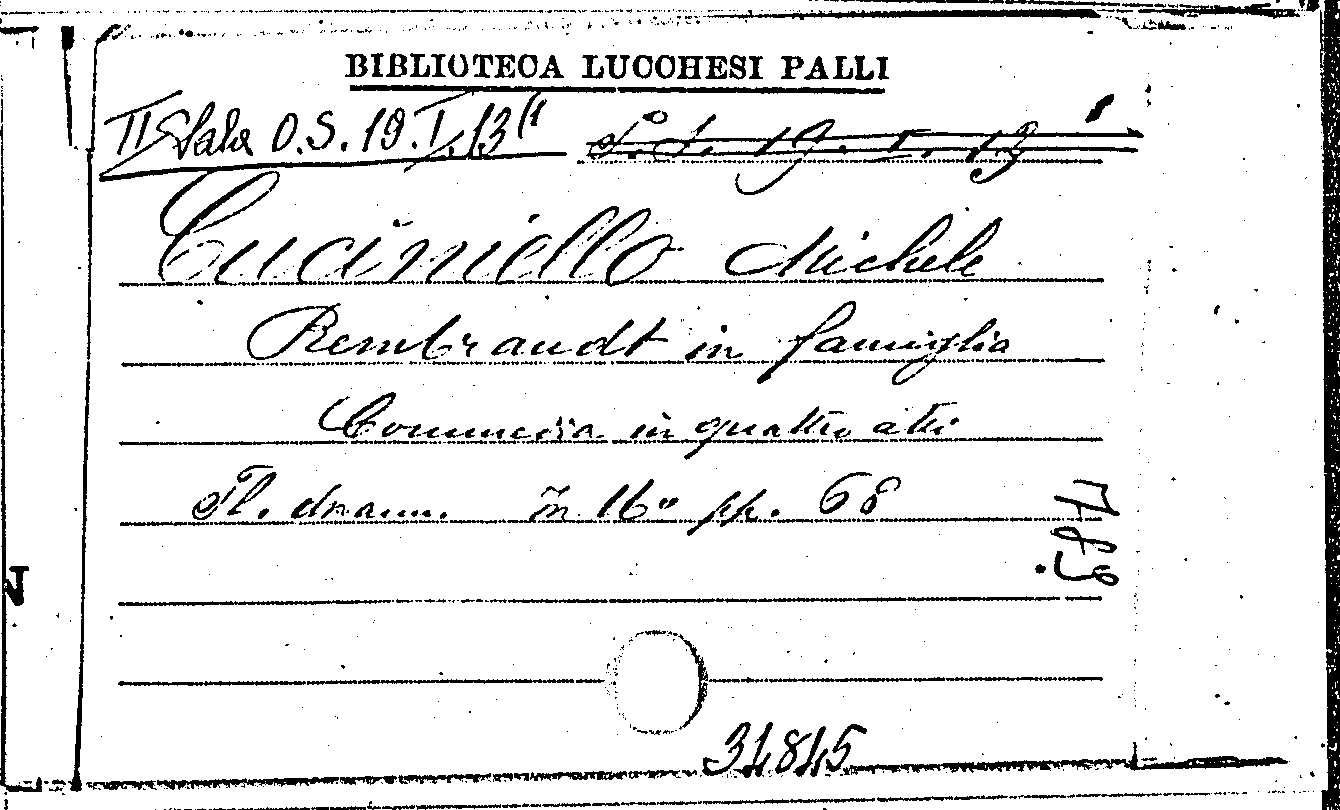 BIBLIOTECA LUCCHESI PALLI
II Sala O.S. 19. I. 13 (1
19. I. 13
Cuciniello Michele
Rembrandt in famiglia
Commedia in quattro atti
Fl. dramm. In 16° pp. 68
34845